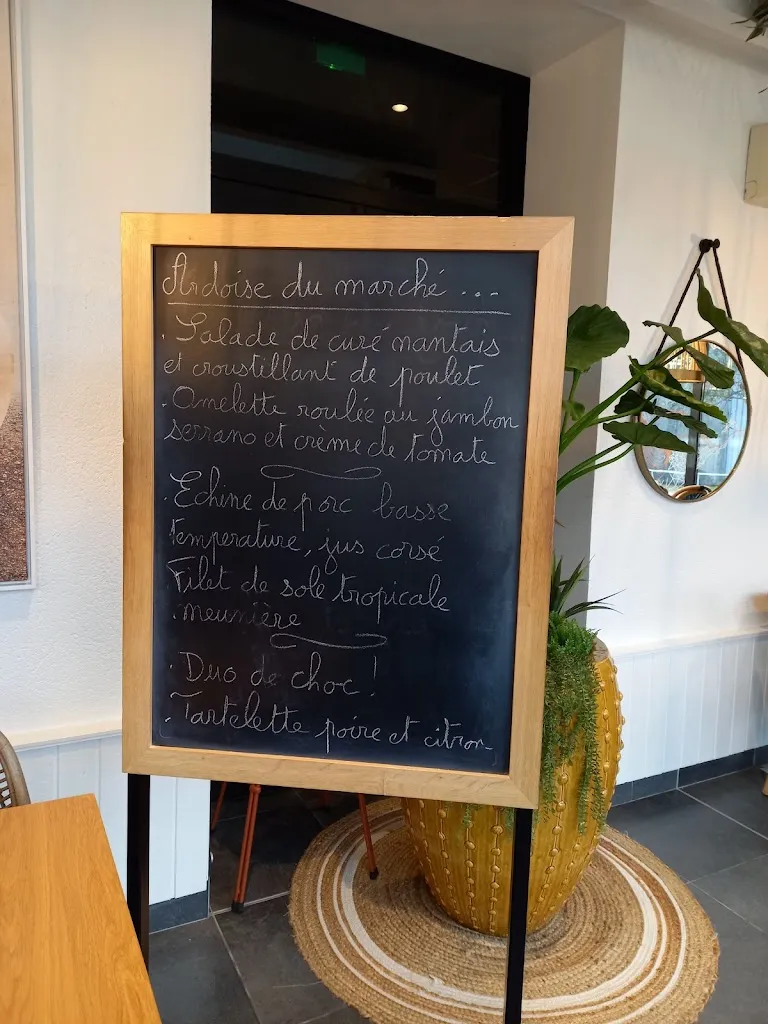 Ardoise du marché ...
. Salade de curé nantais
et croustillant de poulet
. Omelette roulée au jambon
serrano et crème de tomate
. Echine de porc basse
température, jus corsé
. Filet de sole tropicale
meunière
. Duo de choc !
. Tartelette poire et citron